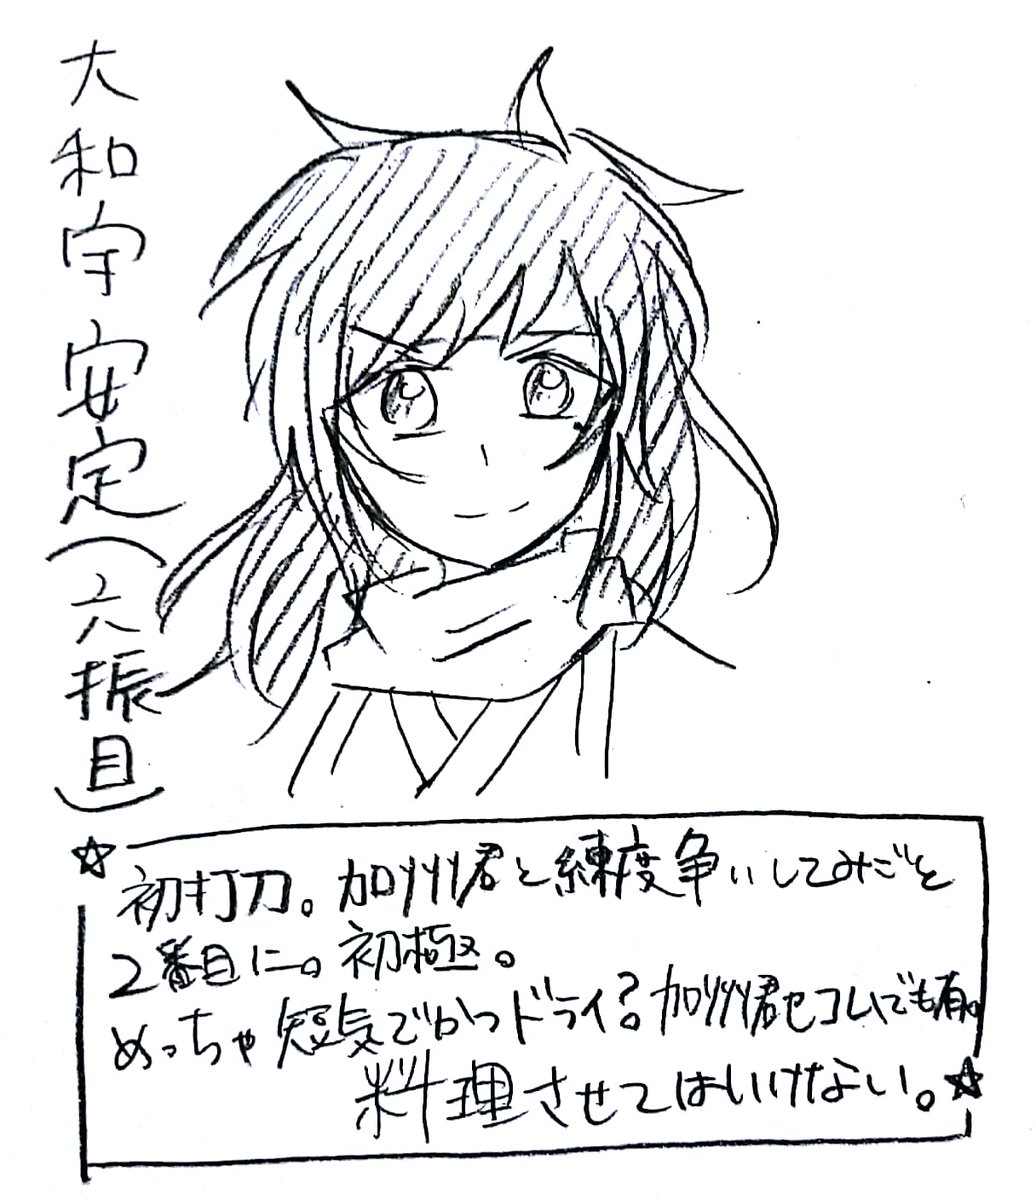 大和守安定(六振目)
☆初打刀。加州君と練度争いしてみごと
2番目に。初極。
めっちゃ短気でかつドライ?加州君セコムでも有。
料理させてはいけない。☆